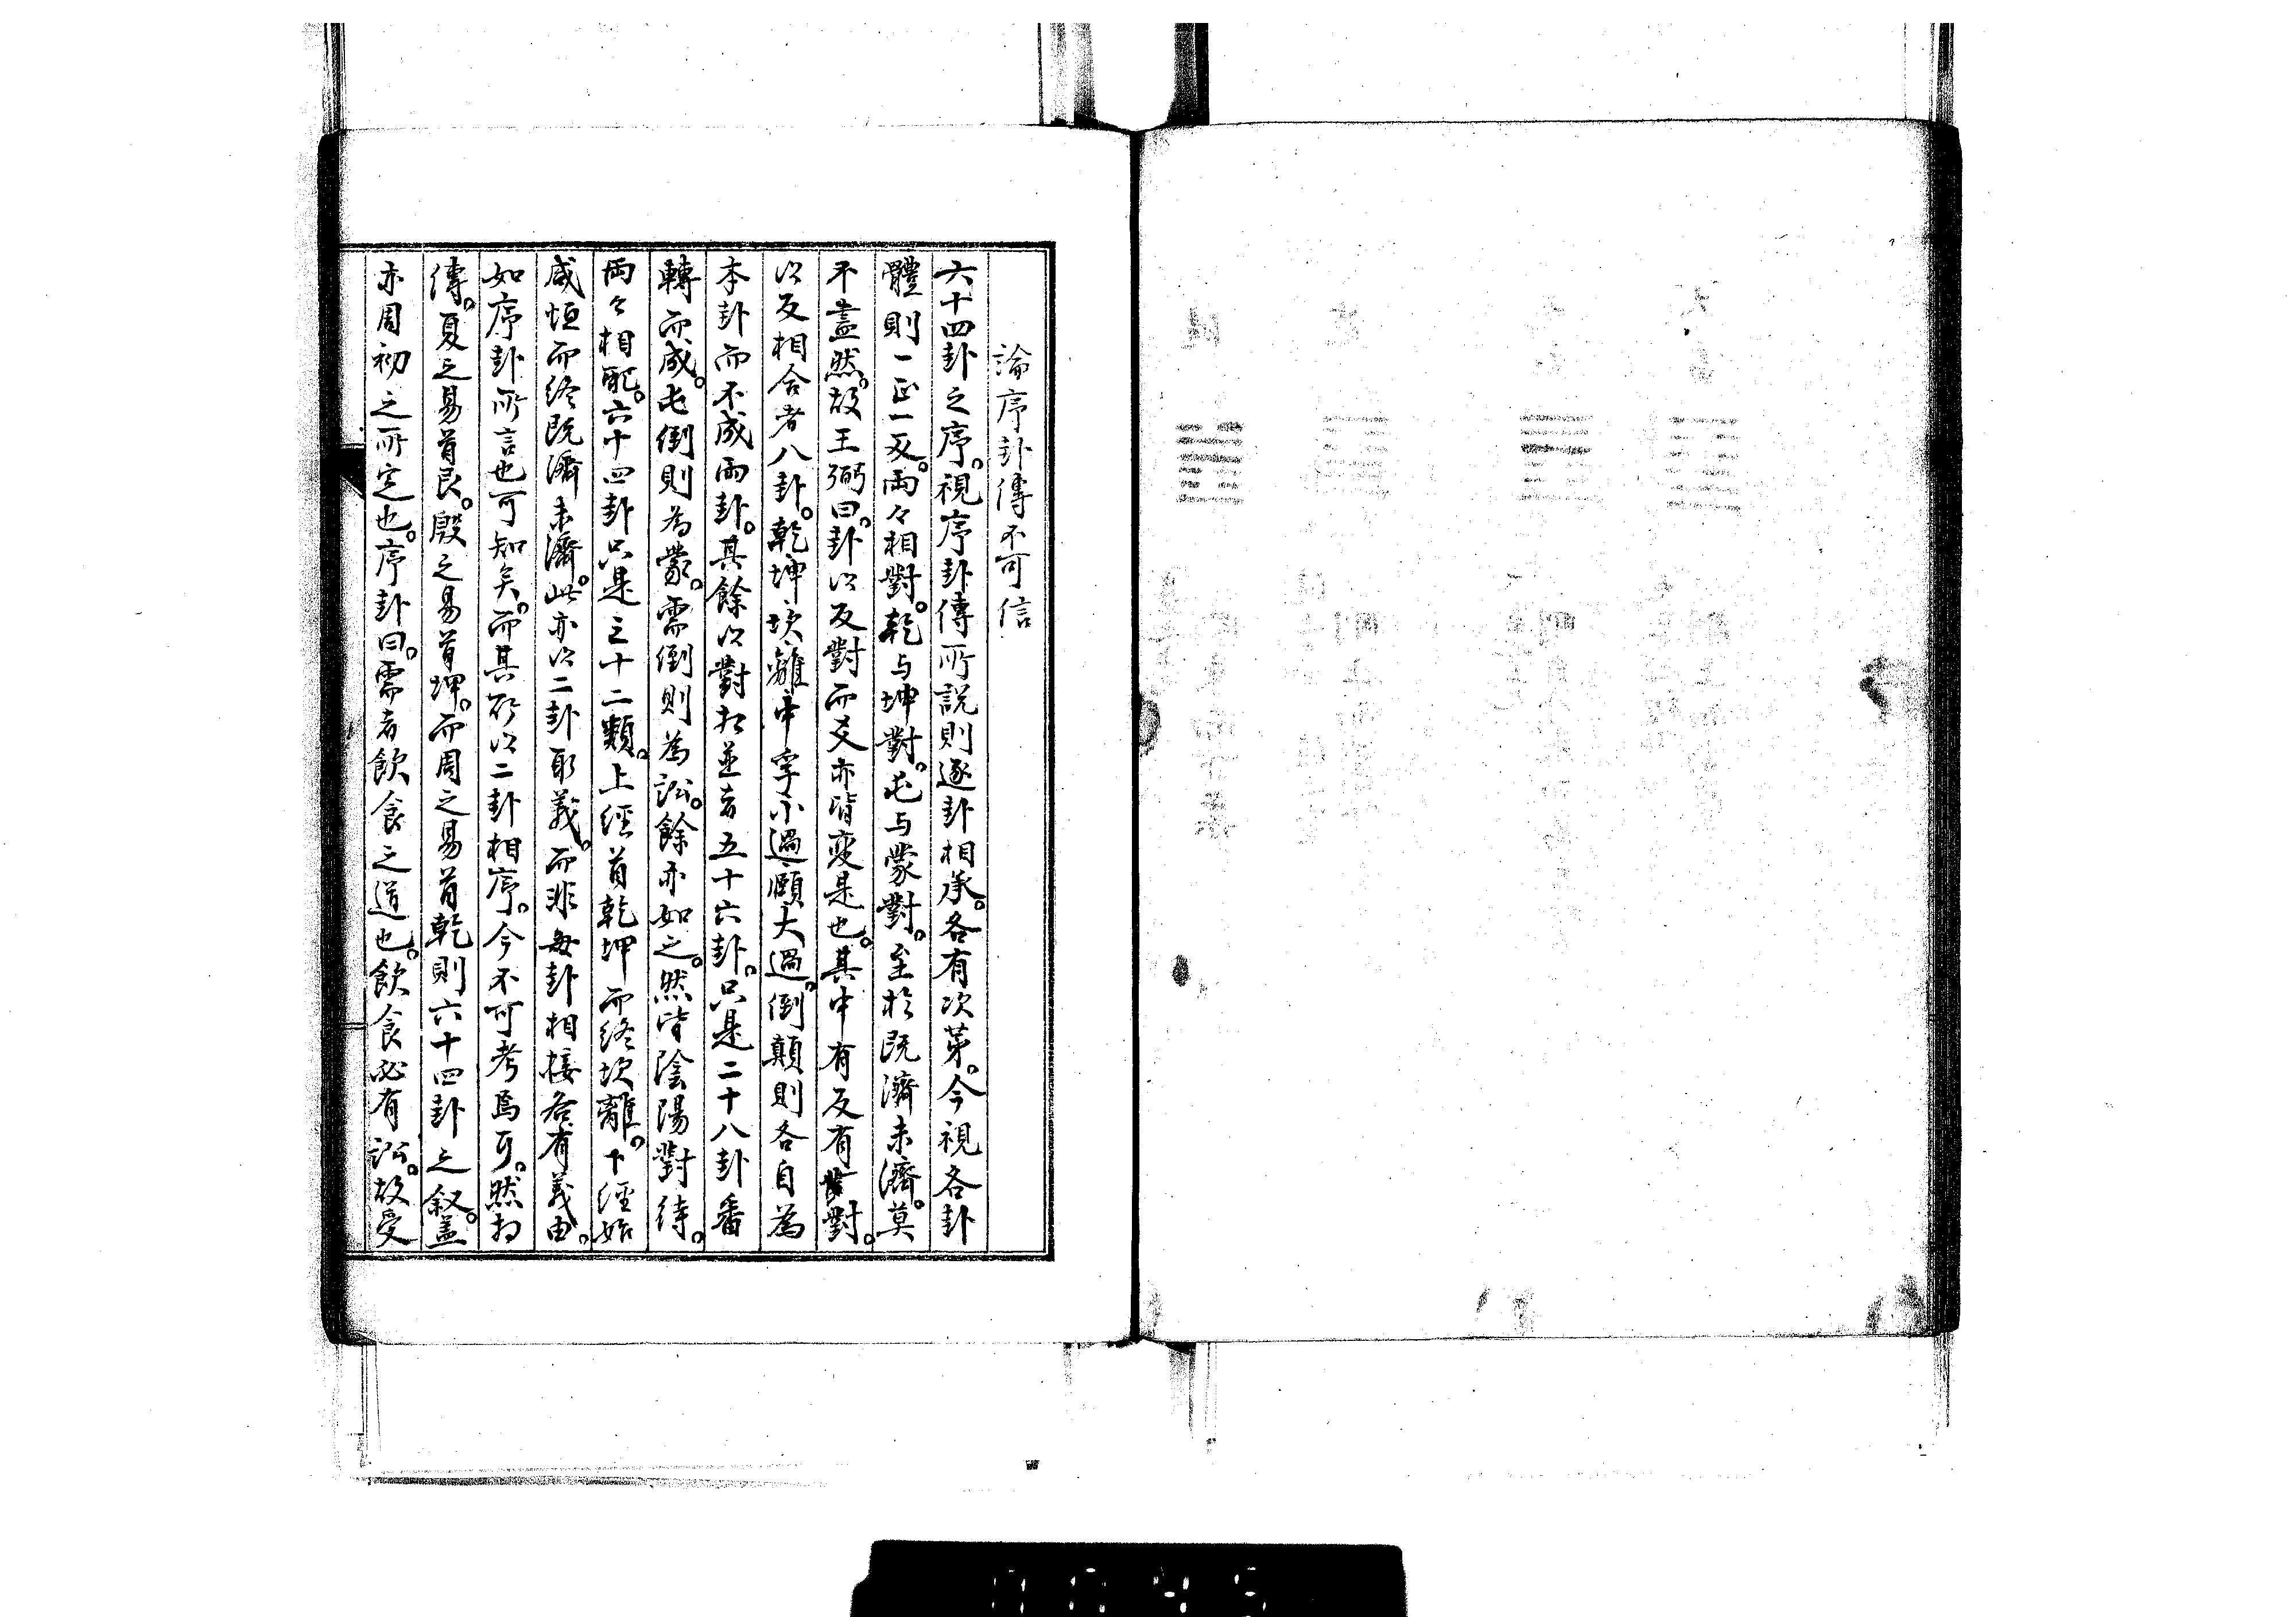 論序卦傳不可信
六十四卦之序。視序卦傳所説則逐卦相承。各有次苐。今視各卦
體則一正一反。兩々相對。乾与坤對。屯与蒙對。至於既濟未濟。莫
不盡然。故王弼曰。卦以反對而爻亦皆変是也。其中有反有對。
以反相合者八卦。乾坤坎離中孚小過頤大過。倒顛則各自為
本卦而不成兩卦。其餘以對相並者五十六卦。只是二十八卦番
轉而成。屯倒則為蒙。需倒則為訟。餘亦如之。然皆陰陽對待。
兩々相配。六十四卦只是三十二類。上經首乾坤而終坎離。下經始
咸恒而終既濟未濟。此亦以二卦取義。而非每卦相接各有義由。
如序卦所言也可知矣。而其所以二卦相序。今不可考焉耳。然相
傳。夏之易首艮。殷之易首坤。而周之易首乾則六十四卦之叙。盖
亦周初之所定也。序卦曰。需者飲食之道也。飲食必有訟。故受